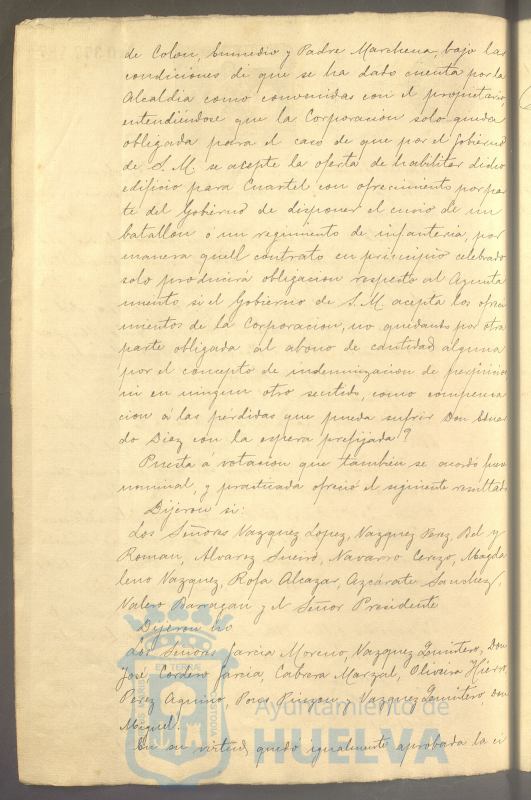 de Colon, Enmedio y Padre Marchena, bajo las
condiciones de que se ha dado cuenta por la
Alcaldia como convenidas con el propietario
entendiéndose que la Corporacion solo queda
obligada para el caso de que por el Gobierno
de S. M. se acepte la oferta de habilitar dicho
edificio para Cuartel con ofrecimiento por par
te del Gobierno de disponer el envio de un
batallon ó un regimiento de infanteria, por
manera que el contrato en principio celebrado
solo producirá obligacion respecto al Ayunta
miento si el Gobierno de S. M. acepta los ofreci
mientos de la Corporacion, no quedando por otra
parte obligada al abono de cantidad alguna
por el concepto de indemnizacion de perjuicios
ni en ningun otro sentido, como compensa
cion á las pérdidas que pueda sufrir Don Eduar
do Diaz con la espera prefijada?
Puesta á votacion que tambien se acordó fuese
nominal, y practicada ofreció el siguiente resultado
Dijeron si:
Los Señores Vazquez Lopez, Vazquez Perez, Bel y
Roman, Alvarez Sueiro, Navarro Cerezo, Magda
leno Vazquez, Rofa Alcazar, Azcárate Sanchez,
Valero Barragan y el Señor Presidente
Dijeron no
Los Señores Garcia Moreno, Vazquez Quintero, Don
José, Cordero Garcia, Cabrera Marzal, Oliveira Hierro,
Perez Aquino, Pons Pinzon y Vazquez Quintero, Don
Miguel.
En su virtud quedó igualmente aprobada la ci
Ayuntamiento de
HUELVA